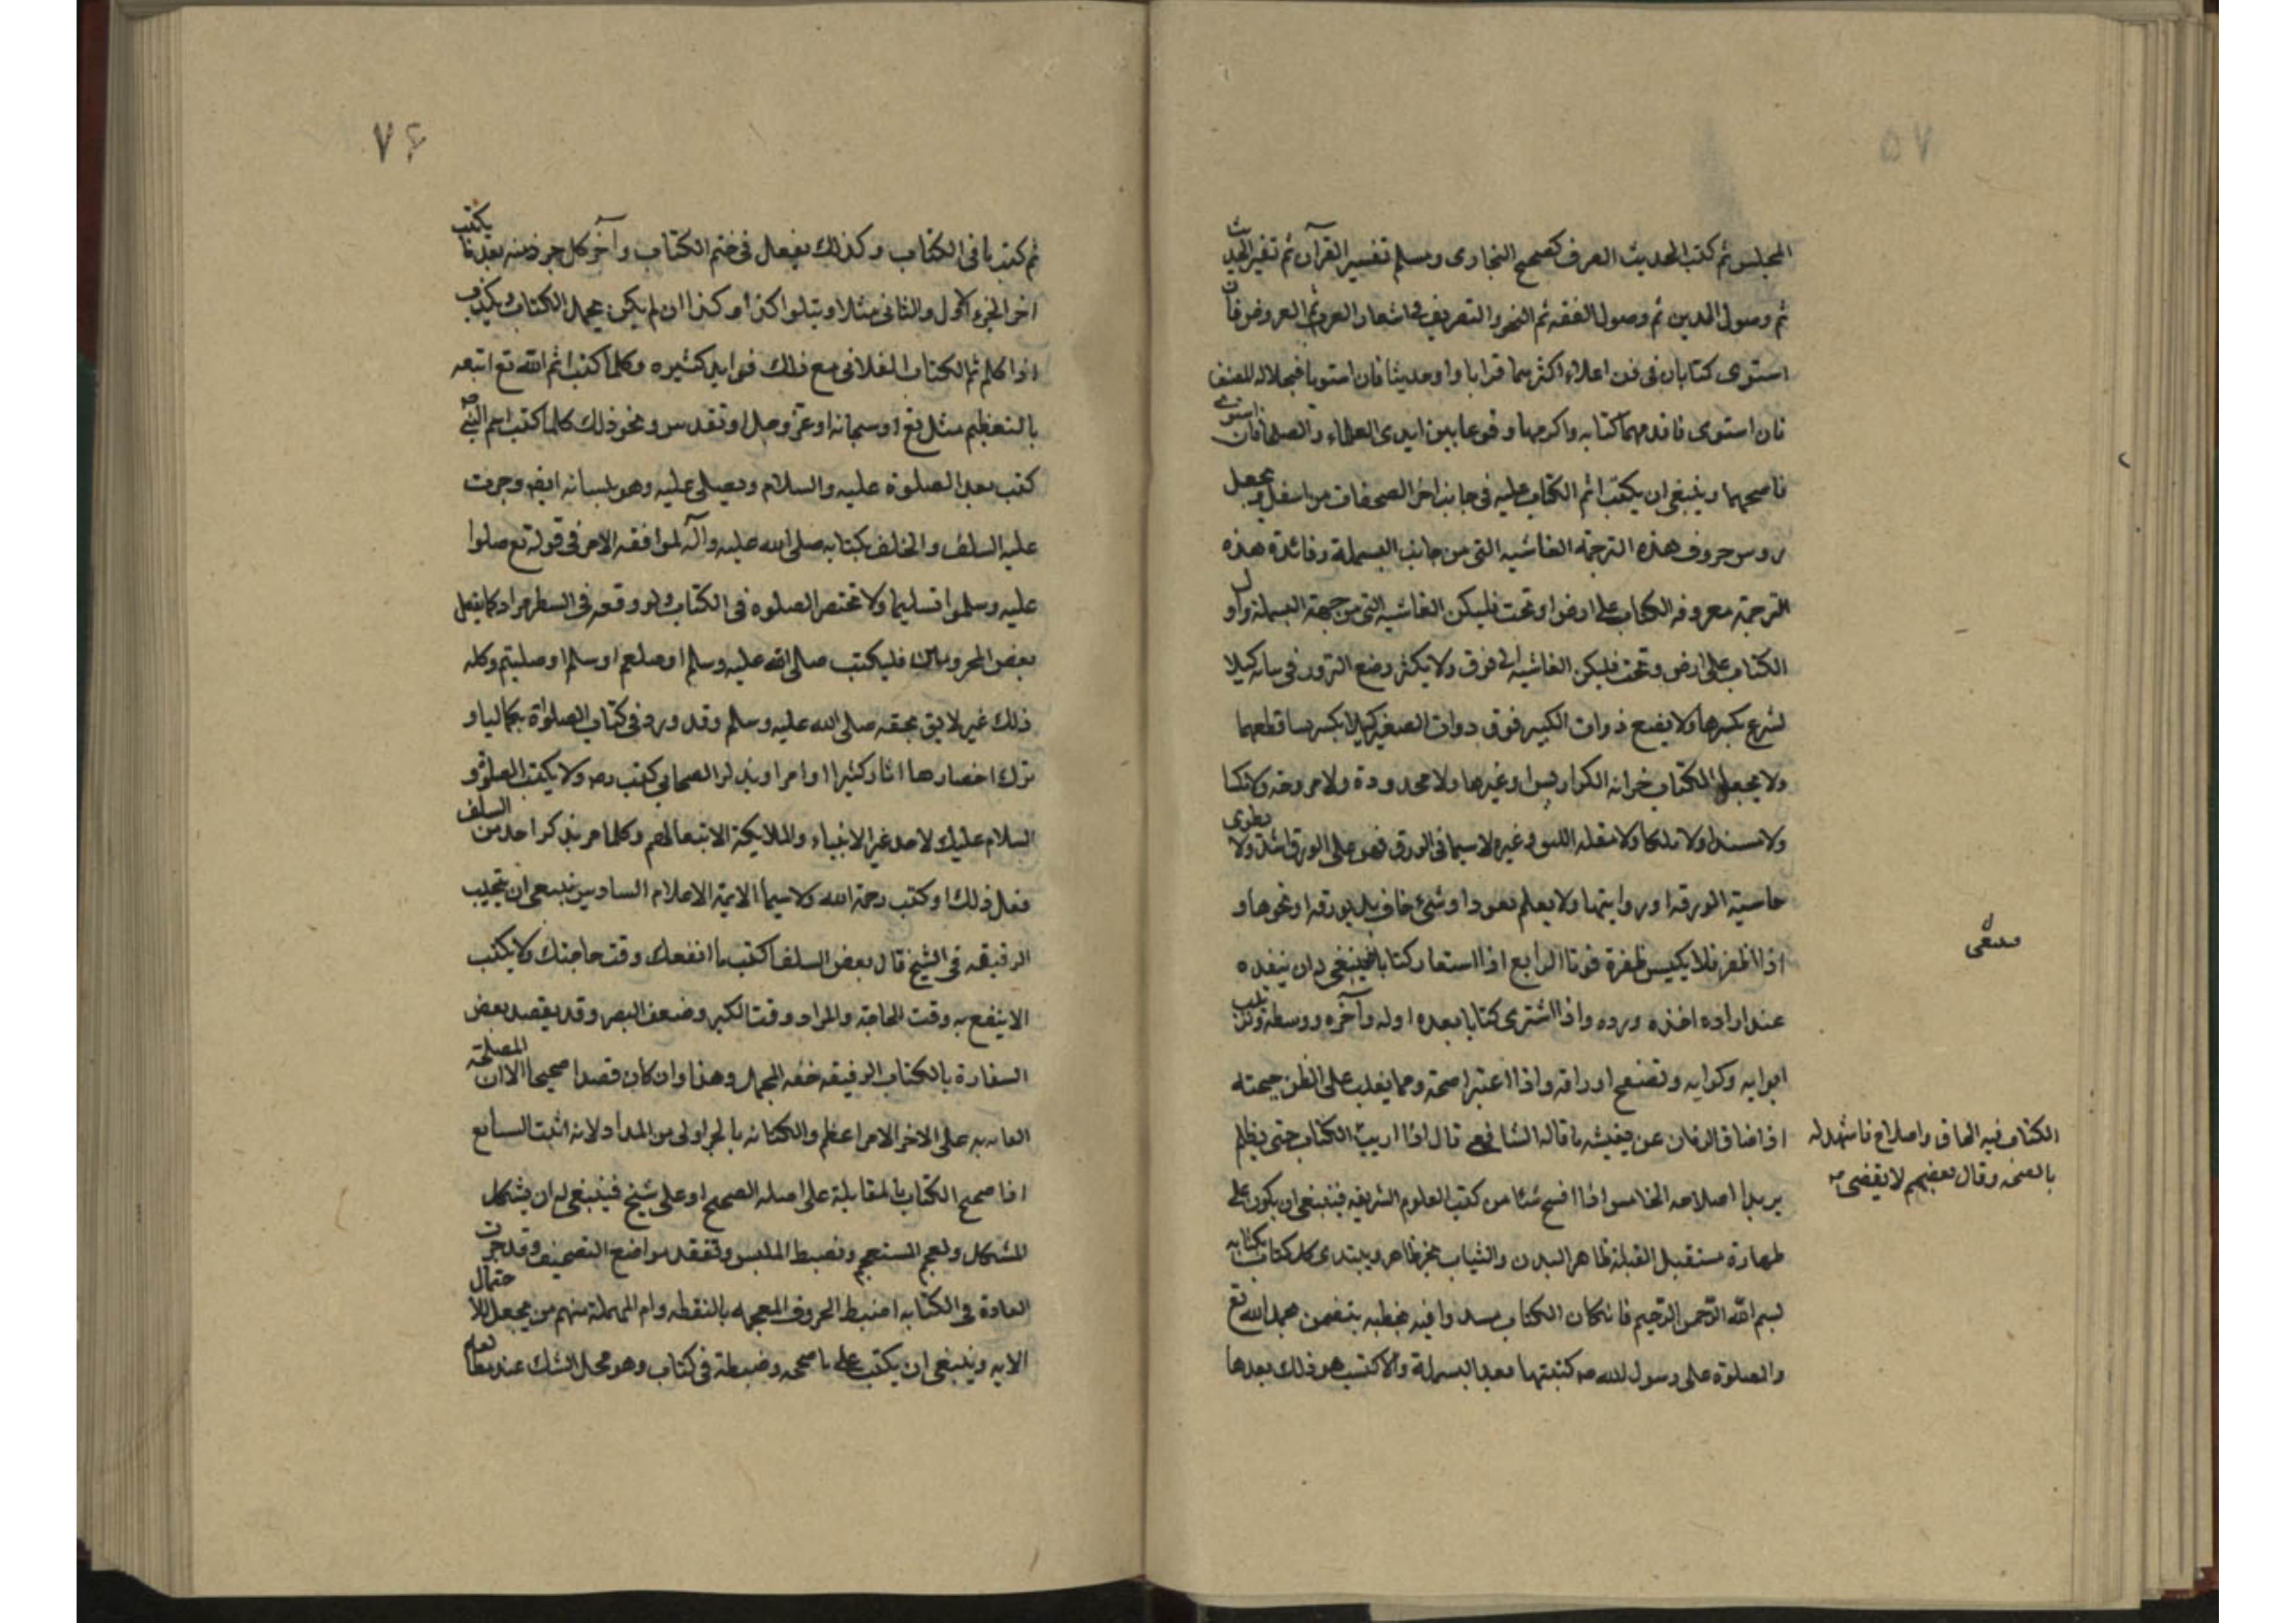 ۷۵
المجلس ثم كتب الحديث الصرف كصحيح البخارى ومسلم تفسير القرآن ثم تفسير الحديث
ثم وصول الدين ثم وصول الفقه ثم النحو والتصريف فى اشعار العرب ثم العروض فان
استوى كتابان فى فن اعلاء اكثرهما قرابا واوحديثا فان استويا فبجلاله المصنف
فان استوى فاقدمهما كتابه واكرمها وقوعا بين ايدى العلماء والصلحا فان استوى
فاصحهما وينبغى ان يكتب اثم الكتاب عليه فى جانب اخر الصحفات من اسفل ويجعل
روس حروف هذه الترجمة الغاشيه التى من جانب البسملة وفائدة هذه
الترجمة معروفه الكتاب على ارض او تحت فليكن الغاشيه التى من جهة البسملة واول
الكتاب على ارض وتحت فليكن الغاشيه الى فوق ولا يكثر وضع التزور فى ساته كيلا
لشرع بكسرها ولا يضع ذوات الكبير فوق دوات الصغير كيلا يكسر بساقطعهما
ولا يجعل الكتاب خرانه الكراريس وغيرها ولا محدودة ولا مروحه ولا تكا
ولا مسندا ولا تلكا ولا مقله اللبق وغيره ولا سيما فى الورق فهو على الورق اشد ولا يطوى
حاسية الورقه او روايتها ولا يعلم بعود او شئ خاف بل بورقه او نحوها و
اذا اظفر فلا يكبس ظفرة قوتا الرابع اذا استعار كتابا فينبغى ان ينفده
عند اراده اخذه ورده واذا اشترى كتابا بعده اوله وآخره ووسطه وترتيب
ابوابه وكرايه وتصفح اوراقه واذا اعتبر صحته ومما يغلب على الظن صحته
اذا ضاق الزمان عن يفيشه ما قاله الشافعى قال اذا اريت الكتاب حتى يظلم
يريد اصلاحه الخامس اذا افسح شئا من كتب العلوم الشريفه فينبغى ان يكون على
طهارة مستقبل القبلة طاهر البدن والثياب بحبر طاهر ويبتدى كل كتاب بكتابه
بسم الله الرحمن الرحيم فان كان الكتاب مبدوا فيه بخطبه يتضمن بحمد الله تع
والصلوة على رسول الله صه كتبتها بعد البسملة والا كتب هو ذلك بعدها
الكتاب فيه الحاق واصلاح فاشهد له
بالصحه وقال بعضهم لا يقضى صه
۷۶
ثم كتب ما فى الكتاب وكذلك يفعل فى ختم الكتاب وآخر كل جزء منه بعد ما يكتب
اخر الجزء الاول والثانى مثلا ويتلوا كذا وكذا ان لم يكن يحمل الكتاب ويكتب
اذا كلم ثم الكتاب الفلانى مع ذلك فوايد كثيره وكلما كتب اثم الله تع اتبعه
بالتعظيم مثل تع او سبحانه او عز وجل او تقدس ونحو ذلك كلما كتب اسم النبى صه
كتب بعد الصلوة عليه والسلام ويصلى عليه وهو بلسانه ايضا وجرت
عليه السلف والخلف بكتابه صلى الله عليه وآله لموافقه الامر فى قوله تع صلوا
عليه وسلموا تسليما ولا تختصر الصلوه فى الكتاب ولو وقعه فى السطر مرار كما يفعل
بعض المحرومين فليكتب صلى الله عليه وسلم او صلعم او سلم او صليتم وكله
ذلك غير لايق بحقه صلى الله عليه وسلم وقد ورد فى كتاب الصلواة بكمالها و
ترك اخصارها اثار كثيرا او امرا ويذكر الصحابى كتب رضه ولا يكتب الصلوة و
السلام عليك لاحد غير الانبياء والملايكة الا تبعا لهم وكلما مر بذكر احد من السلف
فعل ذلك او كتب رحمة الله ولا سيما الايمة الاعلام السادس ينبغى ان يتجلب
الرقيقه فى الشيخ قال بعض السلف اكتب ما انفعك وقت حاجتك ولا يكتب
الا ينفع به وقت الحاجة والمراد وقت الكبر وضعف البصر وقد يقصد بعض
السفارة بالكتاب الرقيقه خفه المحمل وهذا وان كان قصدا صحيحا الا ان المصلحة
العايه به على الاخر الامر اعظم والكتابه بالحبر اولى من المداد لانه اثبت السابع
اذا صحح الكتاب بالمقابلة على اصله الصحيح او على شيخ فينبغى له ان يشكل
المشكل ويعجم المستعجم ويضبط الملبس ويتفقد مواضع التصحيف وقد جرت
العادة فى الكتابه اضبط الحروف المعجمه بالنقطه وام المهملة منهم من يجعل للاحتمال
الايه وينبغى ان يكتب على ما صححه وضبطه فى كتاب وهو محل الشك عند